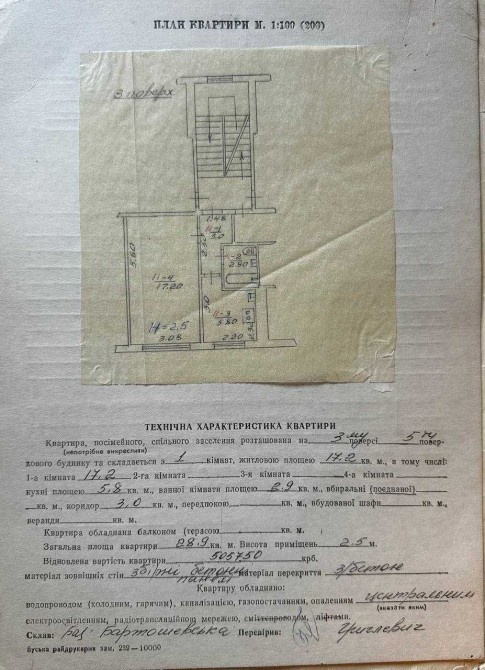 ПЛАН КВАРТИРИ М. 1:100 (200)
3 поверх
1.48
11-1
3.0
2.50
5.60
11-2
2.90
11-4
17.20
3.0
11-3
5.80
H=2.5
3.05
2.20
ТЕХНІЧНА ХАРАКТЕРИСТИКА КВАРТИРИ
Квартира, посімейного, спільного заселення розташована на 3му поверсі 5ти повер-
(непотрібне викреслити)
хового будинку та складається з 1 кімнат, житловою площею 17.2 кв. м., в тому числі
1-а кімната 17.2 2-га кімната 3-я кімната 4-а кімната
кухні площею 5.8 кв. м, ванної кімнати площею 2.9 кв. м., вбиральні (поєднаної)
кв. м, коридор 3.0 кв. м., передпокою кв. м., вбудованої шафи кв. м.,
веранди кв. м.
Квартира обладнана балконом (терасою кв. м.
Загальна площа квартири 28.9 кв. м. Висота приміщень 2.5 м.
Відновлена вартість квартири 505750 крб.
матеріал зовнішніх стін збірні бетонні панелі матеріал перекриття з/бетон
Квартиру обладнано:
водопроводом (холодним, гарячим), каналізацією, газопостачанням, опаленням центральним
(вказати яким)
електроосвітленням, радіотрансляційною мережею, сміттєпроводом, ліфтами.
Склав: Бартошевська Перевірив:
буська райдрукарня зам. 232—10000